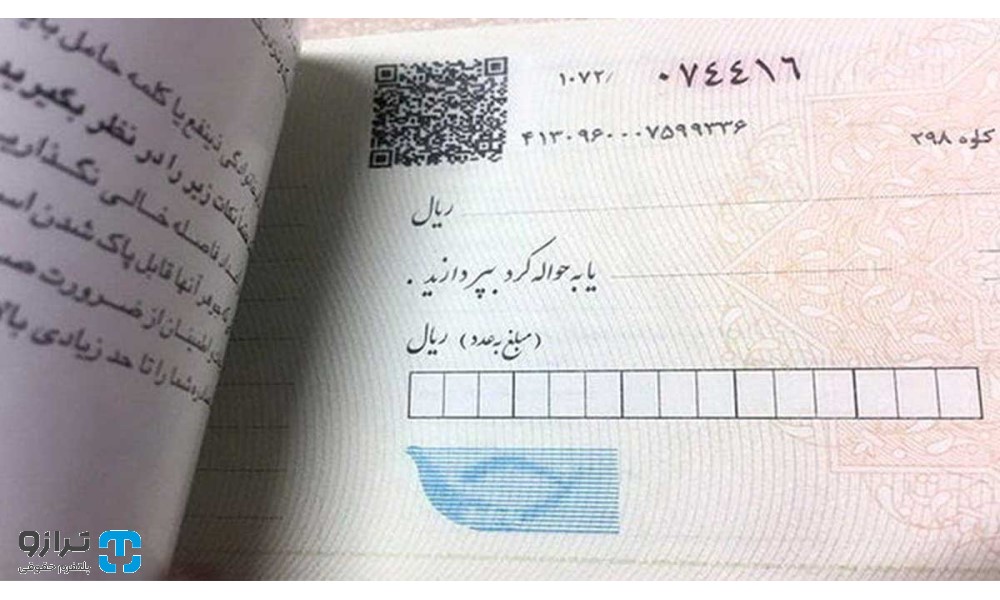 ۱۰۷۲/ ۰۷۴۴۱۶
۴۱۳۰۹۶۰۰۰۷۵۹۹۳۳۶
کلاله ۲۹۸
ریال
یا به حواله کرد بپردازید .
(مبلغ به عدد) ریال
ذینفع یا کلمه حامل
نکات زیر را در نظر بگیرید
فاصله خالی نگذارید
آنها قابل پاک شدن
اطمینان از ضرورت
شما را تا حد زیادی
ترازو
پلتفرم حقوقی